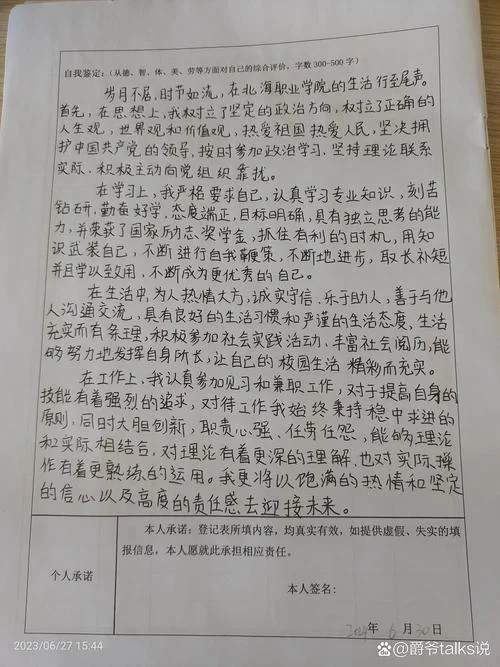 自我鉴定:(从德、智、体、美、劳等方面对自己的综合评价,字数300-500字)
岁月不居,时节如流,在北海职业学院的生活行至尾声。
首先,在思想上,我树立了坚定的政治方向,树立了正确的
人生观,世界观和价值观,热爱祖国热爱人民,坚决拥
护中国共产党的领导,按时参加政治学习,坚持理论联系
实际、积极主动向党组织靠拢。
在学习上,我严格要求自己,认真学习专业知识,刻苦
钻研,勤奋好学,态度端正,目标明确,具有独立思考的能
力,并荣获了国家励志奖学金,抓住有利的时机,用知
识武装自己,不断进行自我鞭策,不断地进步,取长补短
并且学以致用,不断成为更优秀的自己。
在生活中,为人热情大方,诚实守信、乐于助人,善于与他
人沟通交流,具有良好的生活习惯和严谨的生活态度,生活
充实而有条理,积极参加社会实践活动、丰富社会阅历,能
够努力地发挥自身所长,让自己的校园生活精彩而充实。
在工作上,我认真参加见习和兼职工作,对于提高自身的
技能有着强烈的追求,对待工作我始终秉持稳中求进的
原则,同时大胆创新,职责心强、任劳任怨,能够理论
和实际相结合,对理论有着更深的理解,也对实际操
作有着更熟练的运用。我更将以饱满的热情和坚定
的信心以及高度的责任感去迎接未来。
个人承诺
本人承诺:登记表所填内容,均真实有效,如提供虚假、失实的填
报信息,本人愿就此承担相应责任。
本人签名:
年 6 月 30 日
2023/06/27 15:44
@爵爷talks说